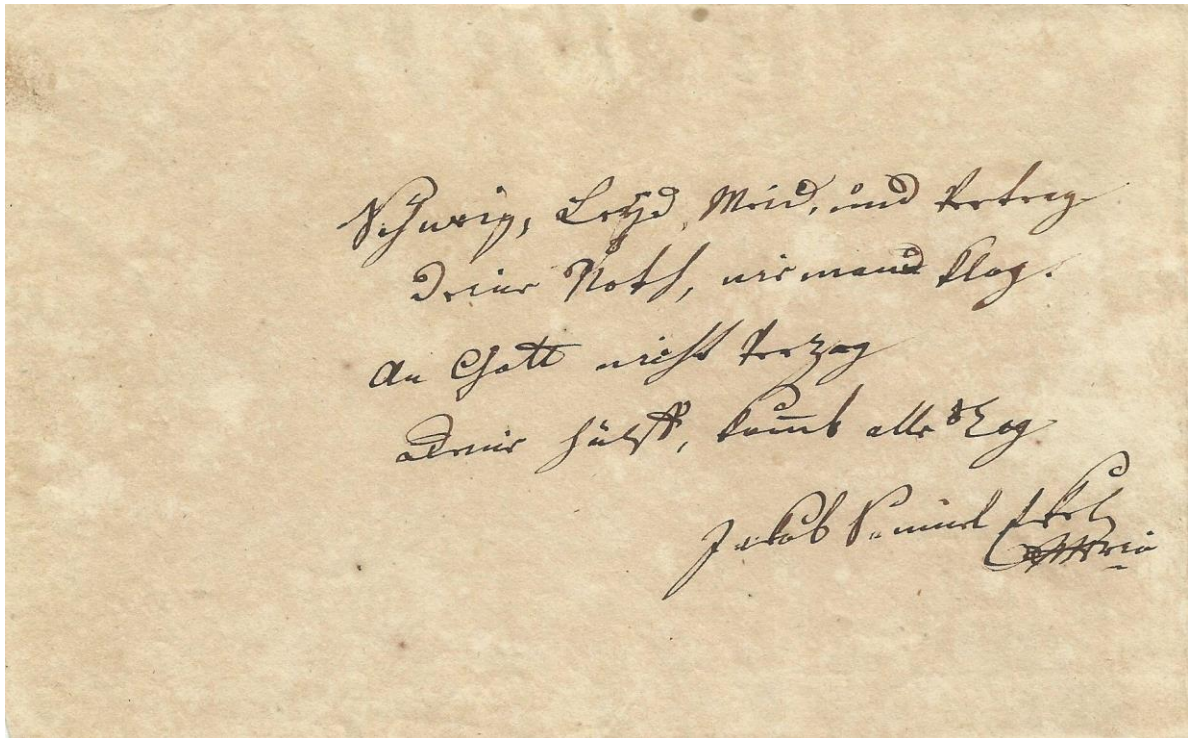 Schweig, Leyd, Meid, und Vertrag
deine Noth, niemand klag.
An Gott nicht Verzag
deine hülff, kom̄t alle Tag
Jakob Samuel